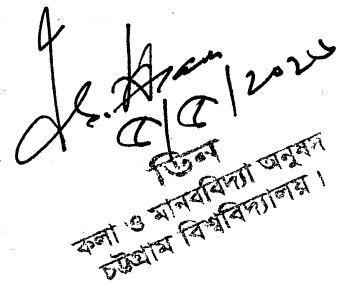 ৫/৫/২০২৬
ডিন
কলা ও মানববিদ্যা অনুষদ
চট্টগ্রাম বিশ্ববিদ্যালয়।